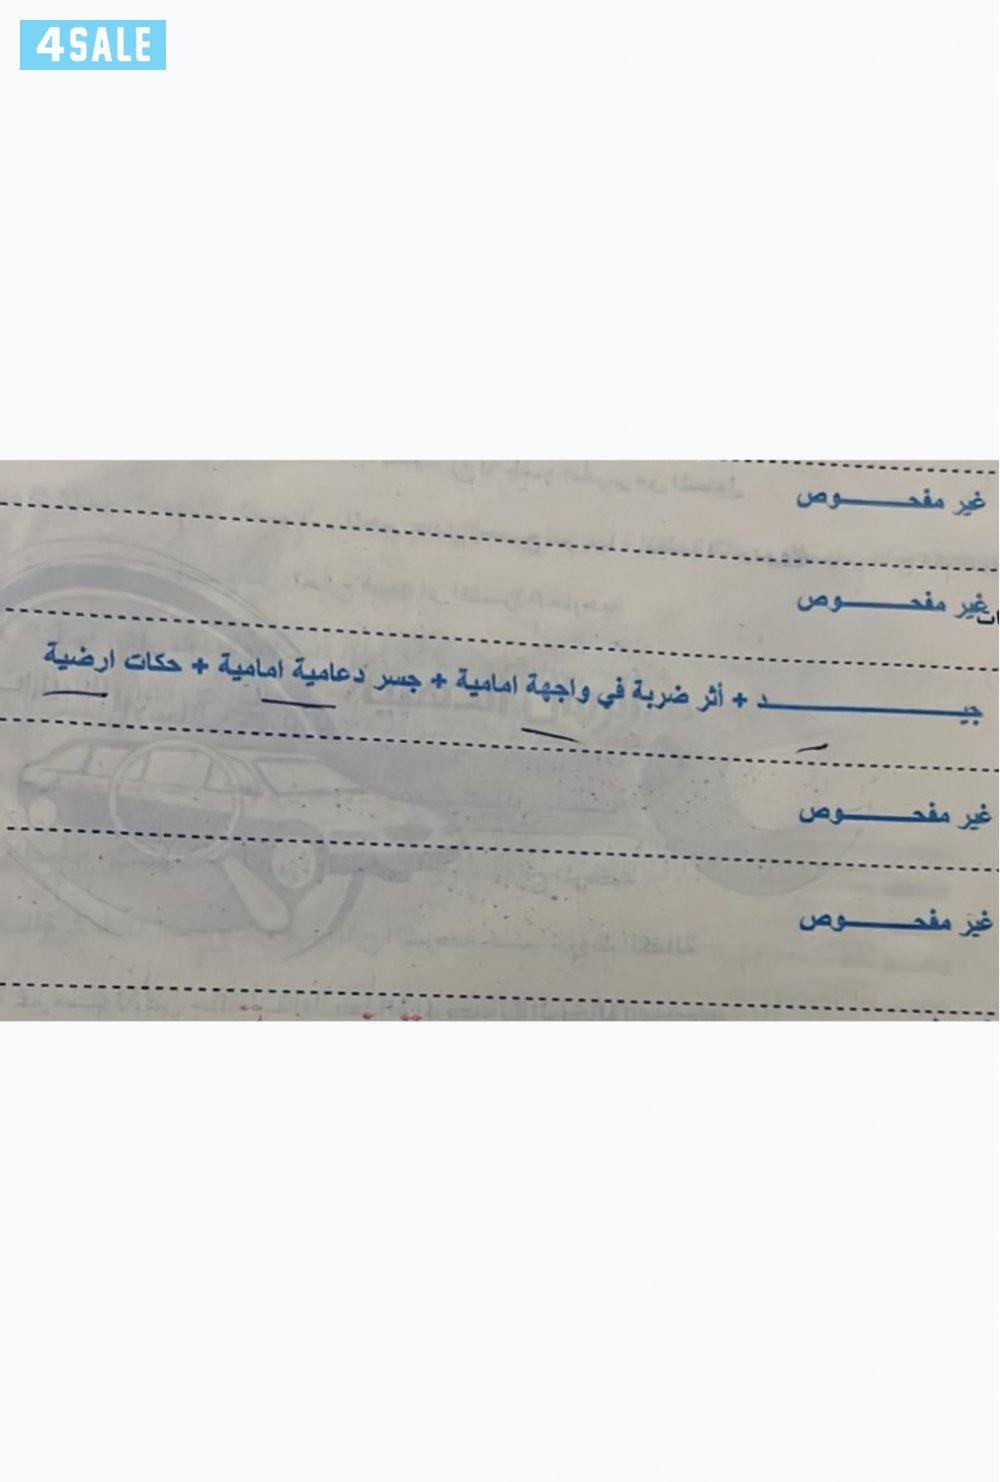 4SALE
غير مفحـــــوص
غير مفحـــــوص
جيـــــــــــد + أثر ضربة في واجهة امامية + جسر دعامية امامية + حكات ارضية
غير مفحـــــوص
غير مفحـــــوص